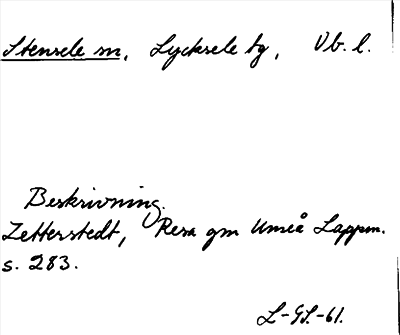 Stensele sn, Lycksele tg, Vb. l.
Beskrivning.
Zetterstedt, Resa gm Umeå Lappm.
s. 283.
L-GS.-61.